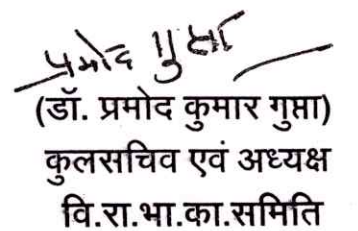 प्रमोद गुप्ता
(डॉ. प्रमोद कुमार गुप्ता)
कुलसचिव एवं अध्यक्ष
वि.रा.भा.का.समिति